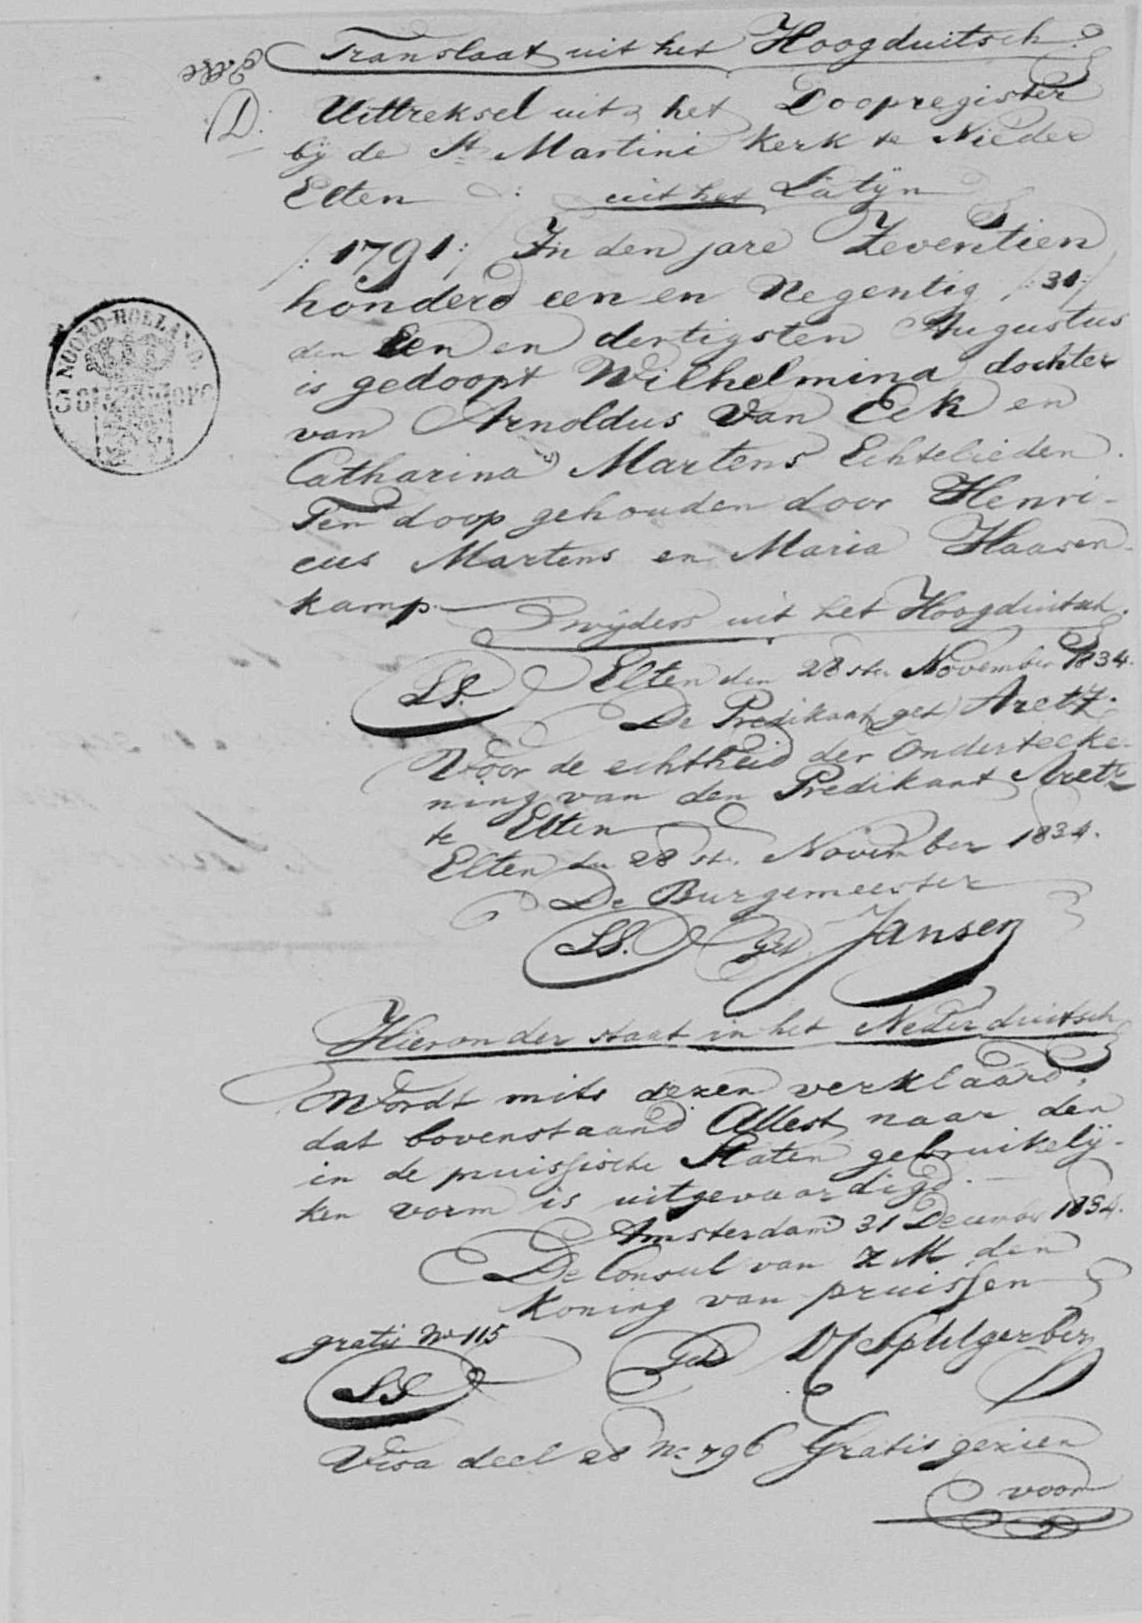 Translaat uit het Hoogduitsch
D. Uittreksel uit het Doopregister
bij de St Martini Kerk te Nieder
Elten : uit het Latijn
/:1791:/ In den jare Zeventien
honderd een en Negentig /:31:/
den Een en dertigsten Augustus
is gedoopt Wilhelmina dochter
van Arnoldus van Eek en
Catharina Martens Echtelieden.
Ten doop gehouden door Henri-
cus Martens en Maria Haasen-
kamp. wijders uit het Hoogduitsch.
LS. Elten den 28ste November 1834.
De Predikant get) Aretz.
Voor de echtheid der Onderteeke-
ning van den Predikant Aretz
te Elten
Elten den 28ste November 1834.
De Burgemeester
LS. get Jansen
Hieronder staat in het Nederduitsch
Wordt mits dezen verklaard,
dat bovenstaand Attest naar den
in de pruissische Staten gebruikelij-
ken vorm is uitgevaardigd.
Amsterdam 31 December 1834.
De Consul van Z M den
Koning van pruissen
gratis No 115 Get
LS
Visa deel 28 No 796 Gratis gezien
voor
NOORD-HOLLAND